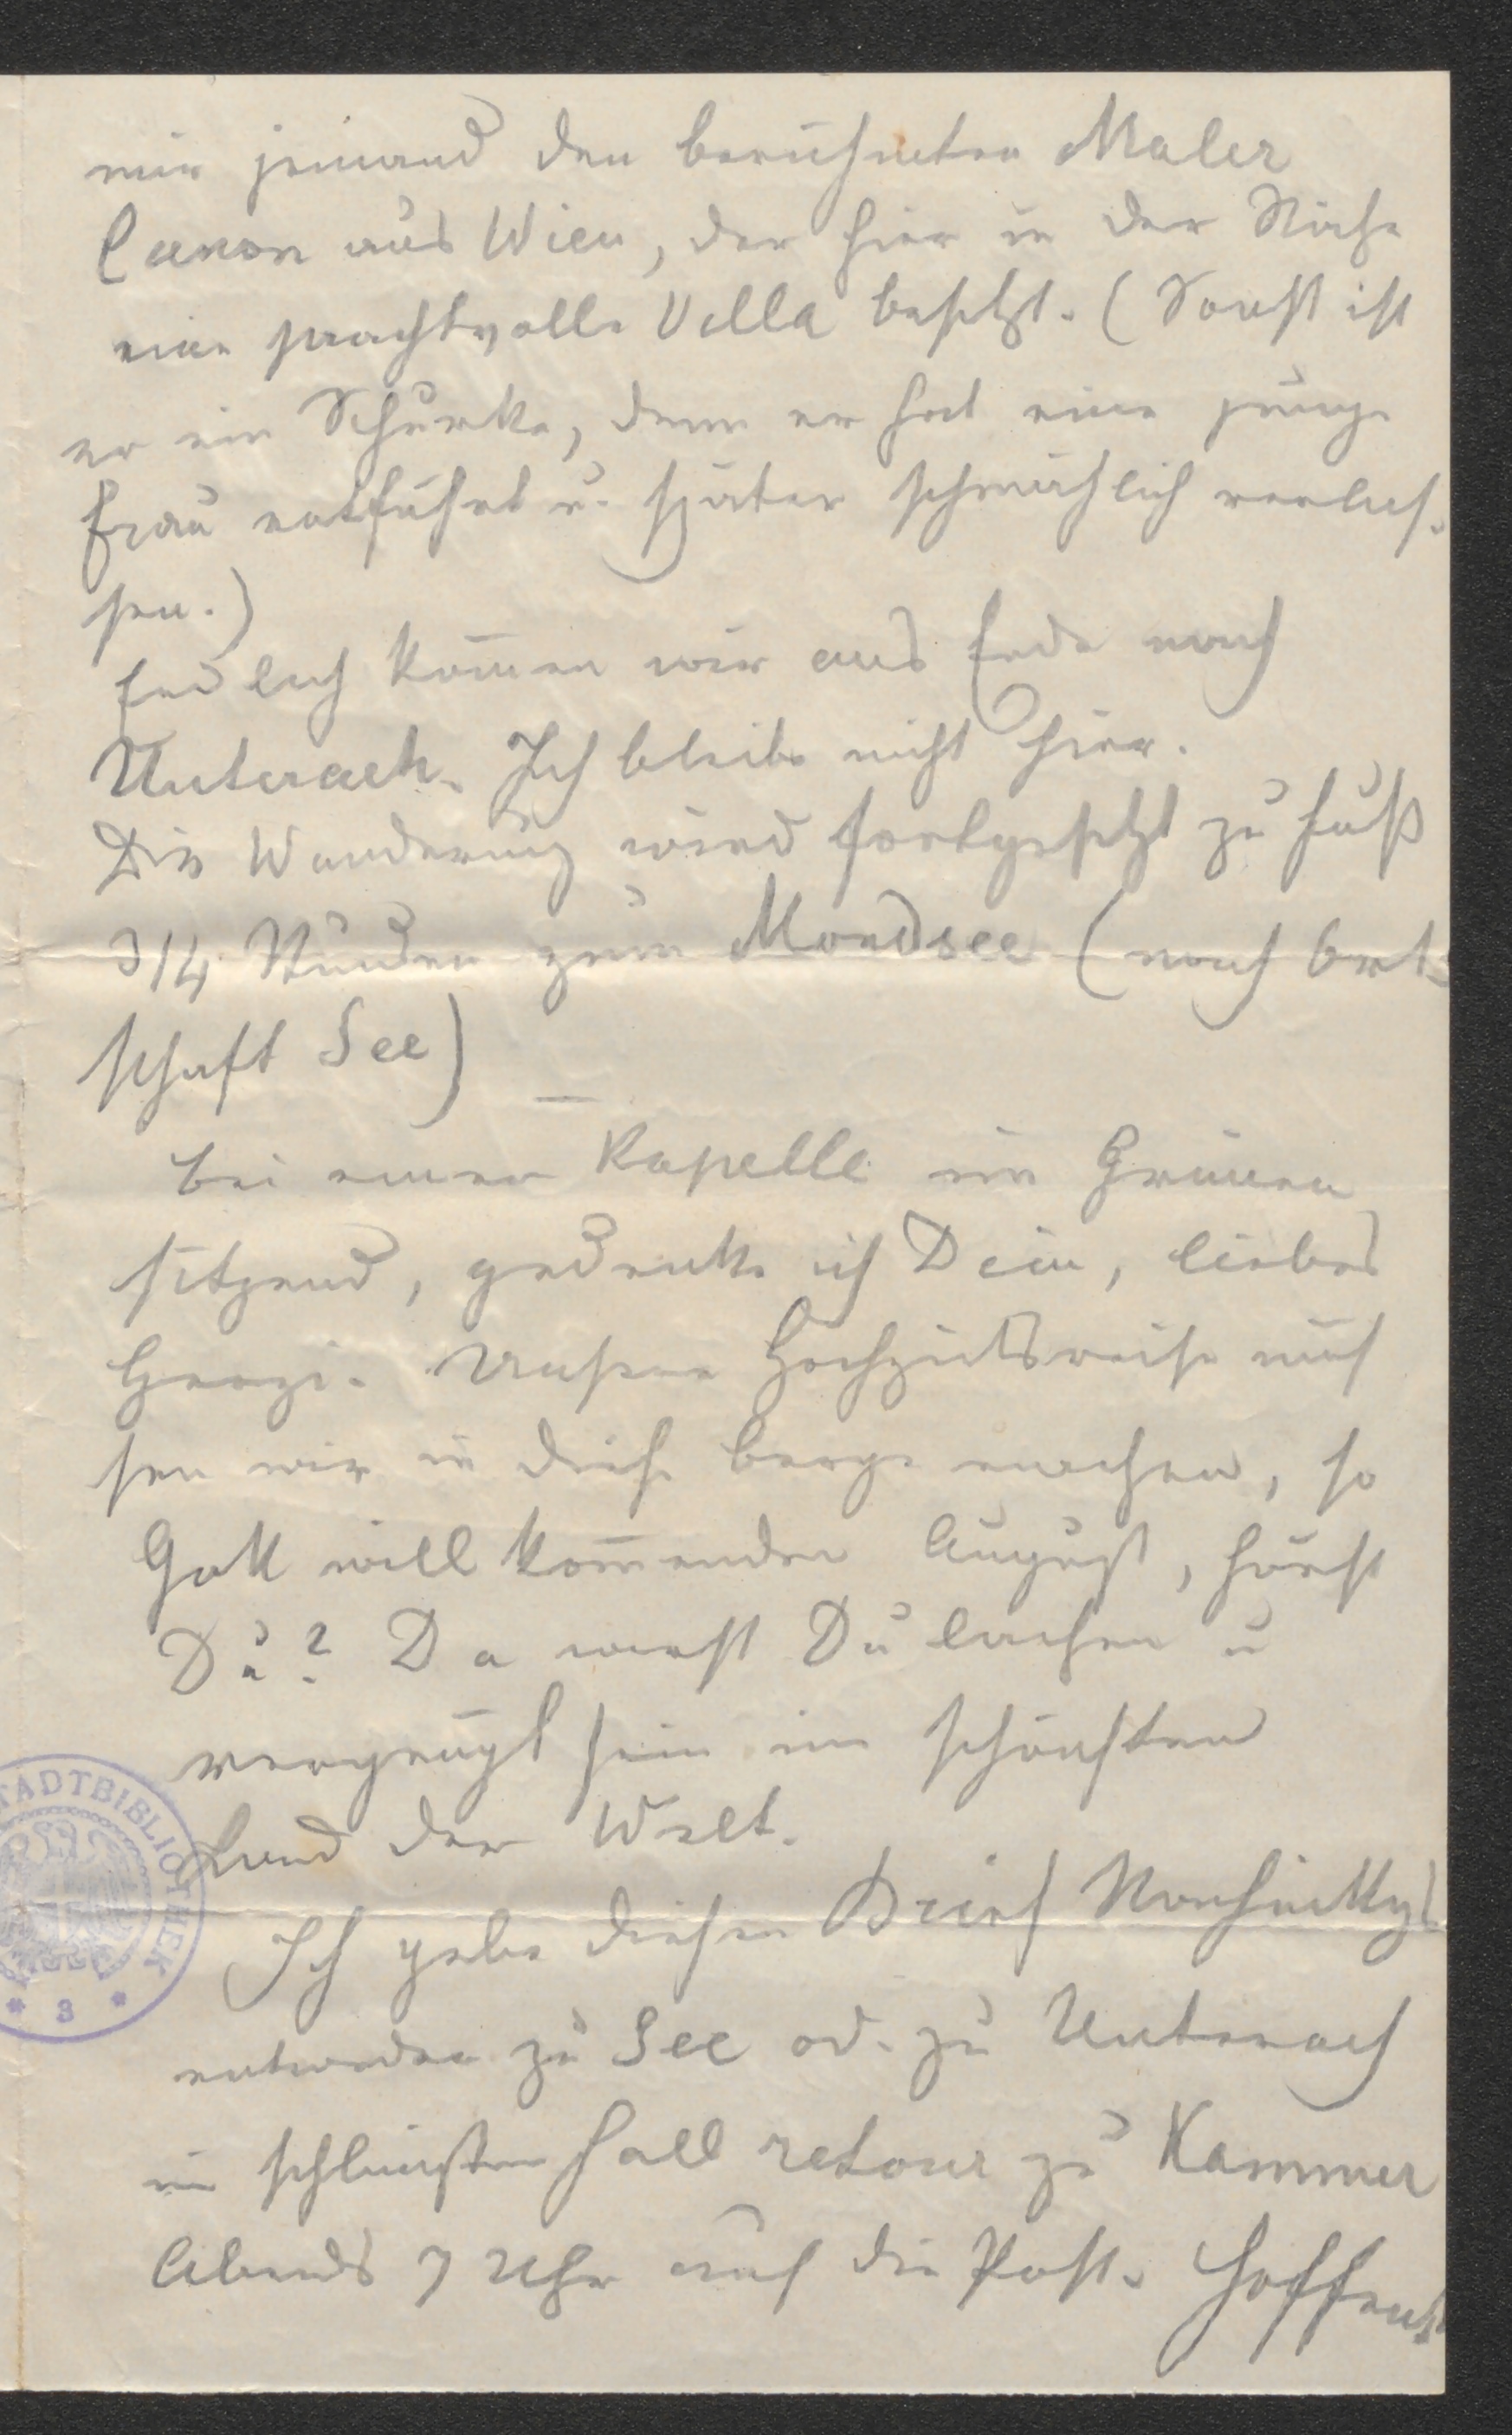 mir jemand den berühmten Maler
Canon aus Wien, der hier in der Nähe
eine prachtvolle Villa besitzt. (Sonst ist
er ein Schurke, denn er hat eine junge
Frau entführt u. später schmählich verlas-
sen.)
Endlich kom̅en wir ans Ende nach
Unterach. Ich bleibe nicht hier.
Die Wanderung wird fortgesetzt zu Fuß
3/4 Stunden zum Mondsee (nach Ort-
schaft See)
—
Bei einer Kapelle im Grünen
sitzend, gedenke ich Dein, liebes
Herzi. Unsere Hochzeitsreise müs
sen wir in diese Berge machen, so
Gott will kom̅enden August, hörst
Du? Da wirst Du lachen u
vergnügt sein im schönsten
Land der Welt.
Ich gebe diesen Brief Nachmittgs
entweder zu See od. zu Unterach
im schlim̅sten Fall retour zu Kammer
Abends 7 Uhr auf die Post. Hoffent
STADTBIBLIOTHEK
* 3 *